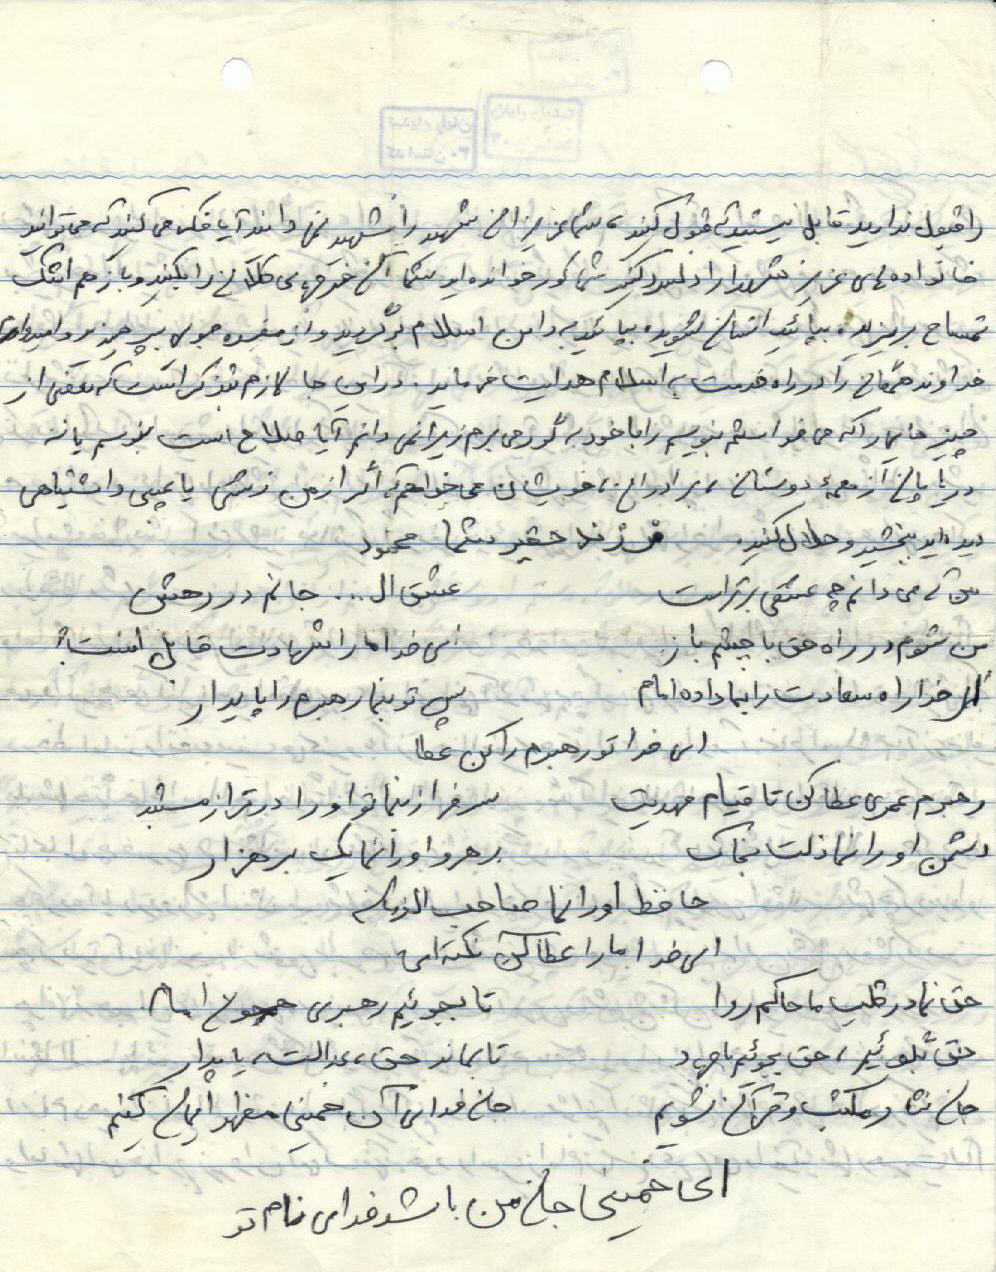 را قبول ندارید قابل نیستید که قبول کنید، شما عزیزان شهید را شهید نمی دانند آیا فکر می کنید که می توانید
خانواده های عزیز شهدا را دلسرد کنید شما کور خوانده اید شما آن خرقه ی طلائی را بکنید و باز هم اشک
تمساح بریزید، بیائید انسان شوید، بیائید به دامن اسلام برگردید و از مفسده جویی بپرهیزید و امیدوارم
خداوند همگان را در راه خدمت به اسلام هدایت فرماید. در این جا لازم بتذکر است که بعضی از
چیز هایی را که می خواستم بنویسم را با خود به گور می برم زیرا نمی دانم آیا صلاح است بنویسم یا نه
در پایان از همه دوستان، برادران، خویشان می خواهم که اگر از من زشتی یا عیبی و اشتباهی
دیده اید ببخشید و حلال کنید. فرزند حقیر شما محمود
من که می دانم چه عشقی برتر است عشق ال... جانم در رهش
من شوم در راه حق با چشم باز ای خدا ما را شهادت قابل است؟
ای خدا راه سعادت را بما داده امام پس تو بنما رهبرم را پایدار
ای خدا تو رهبرم را کن عطا
رهبرم عمری عطا کن تا قیام مهدیت سرفراز نما تو او را در تراز مستبد
دشمن او را نما ذلت بخاک رهرو او را نما یک بر هزار
حافظ او را نما صاحب الزمان
ای خدا ما را عطا کن نکته ای
حق نما در قلب ما حاکم روا تا بجوئیم رهبری همچون امام
حق بگوئیم، حق بجوئیم با جهاد تا بماند حق، عدالت، پایدار
جان نثار مکتب و قرآن شویم جان فدای آن خمینی مظهر ایمان کنیم
ای خمینی جان من باشد فدای نام تو